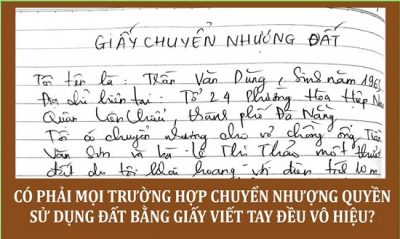 GIẤY CHUYỂN NHƯỢNG ĐẤT
Tôi tên là : Trần Văn Dũng , Sinh năm 196
Địa chỉ hiện tại : Tổ 24 Phường Hoà Hiệp Na
Quận Liên Chiểu, thành phố Đà Nẵng
Tôi có chuyển nhượng cho vợ chồng ông
Văn Sơn và bà : Lê Thị Thảo một
đất do tôi khai hoang với diện
CÓ PHẢI MỌI TRƯỜNG HỢP CHUYỂN NHƯỢNG QUYỀN
SỬ DỤNG ĐẤT BẰNG GIẤY VIẾT TAY ĐỀU VÔ HIỆU?